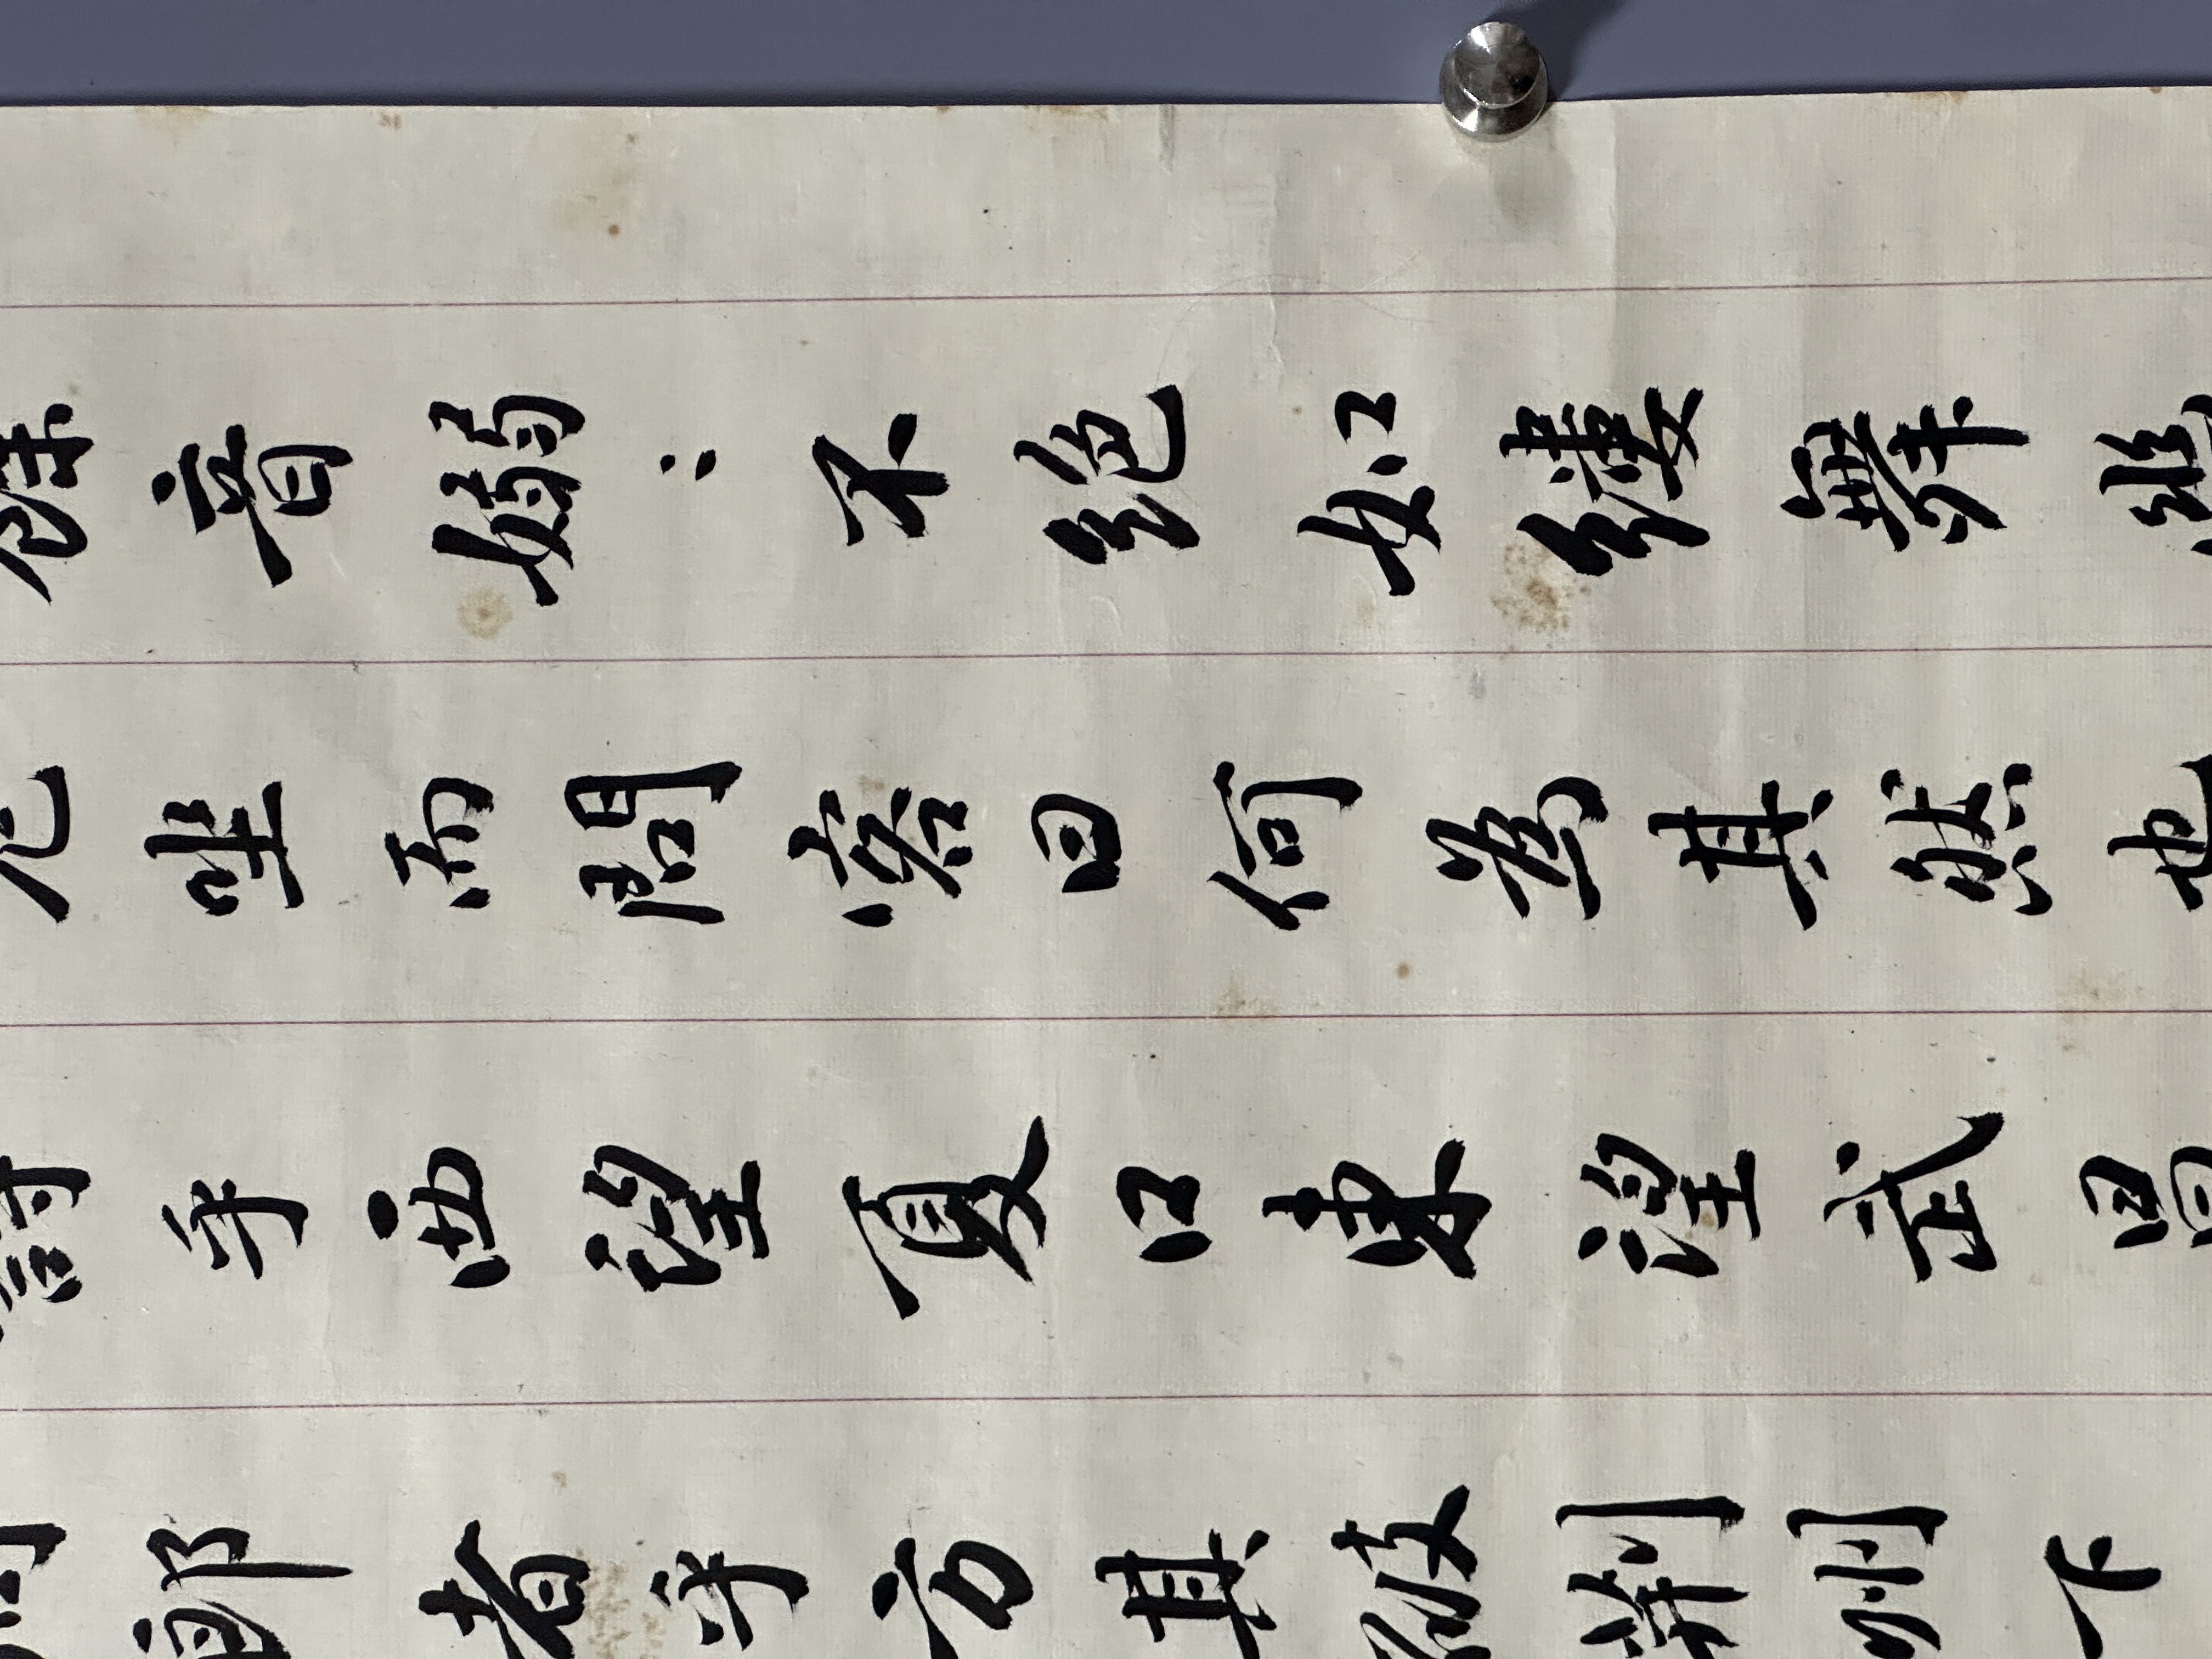 餘音嫋〻不絕如縷舞幽
危坐而問客曰何為其然也
詩乎西望夏口東望武昌
郎者乎方其破荊州下